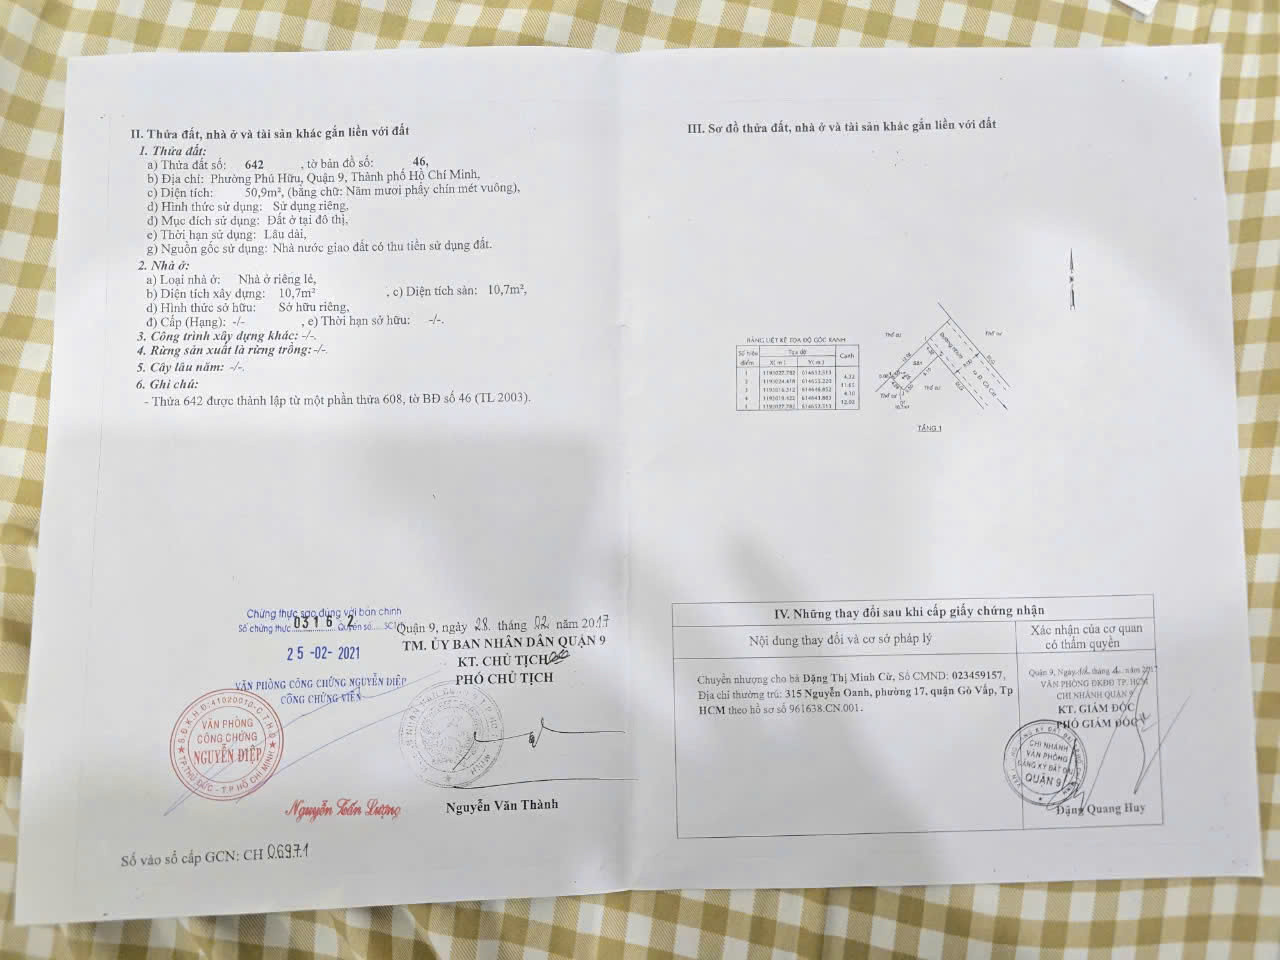 II. Thửa đất, nhà ở và tài sản khác gắn liền với đất
1. Thửa đất:
a) Thửa đất số: 642 , tờ bản đồ số: 46,
b) Địa chỉ: Phường Phú Hữu, Quận 9, Thành phố Hồ Chí Minh,
c) Diện tích: 50,9m², (bằng chữ: Năm mươi phẩy chín mét vuông),
d) Hình thức sử dụng: Sử dụng riêng,
đ) Mục đích sử dụng: Đất ở tại đô thị,
e) Thời hạn sử dụng: Lâu dài,
g) Nguồn gốc sử dụng: Nhà nước giao đất có thu tiền sử dụng đất.
2. Nhà ở:
a) Loại nhà ở: Nhà ở riêng lẻ,
b) Diện tích xây dựng: 10,7m² , c) Diện tích sàn: 10,7m²,
d) Hình thức sở hữu: Sở hữu riêng,
đ) Cấp (Hạng): -/- , e) Thời hạn sở hữu: -/-.
3. Công trình xây dựng khác: -/-.
4. Rừng sản xuất là rừng trồng: -/-.
5. Cây lâu năm: -/-.
6. Ghi chú:
- Thửa 642 được thành lập từ một phần thửa 608, tờ BĐ số 46 (TL 2003).
Chứng thực sao đúng với bản chính
Số chứng thực 03162 Quyển số
25-02-2021
VĂN PHÒNG CÔNG CHỨNG NGUYỄN ĐIỆP
CÔNG CHỨNG VIÊN
VĂN PHÒNG
CÔNG CHỨNG
NGUYỄN ĐIỆP
TP.THỦ ĐỨC - T.P HỒ CHÍ MINH
Nguyễn Tấn Lượng
Quận 9, ngày 28 tháng 02 năm 2017
TM. ỦY BAN NHÂN DÂN QUẬN 9
KT. CHỦ TỊCH
PHÓ CHỦ TỊCH
Nguyễn Văn Thành
Số vào sổ cấp GCN: CH 06971
III. Sơ đồ thửa đất, nhà ở và tài sản khác gắn liền với đất
BẢNG LIỆT KÊ TỌA ĐỘ GÓC RANH
Số hiệu điểm
Tọa độ
Cạnh
X( m ) Y( m )
4.32
4.10
TẦNG 1
IV. Những thay đổi sau khi cấp giấy chứng nhận
Nội dung thay đổi và cơ sở pháp lý
Xác nhận của cơ quan
có thẩm quyền
Chuyển nhượng cho bà Đặng Thị Minh Cừ, Số CMND: 023459157,
Địa chỉ thường trú: 315 Nguyễn Oanh, phường 17, quận Gò Vấp, Tp
HCM theo hồ sơ số 961638.CN.001.
Quận 9, Ngày tháng năm 2017
VĂN PHÒNG ĐKĐĐ TP. HCM
CHI NHÁNH QUẬN 9
KT. GIÁM ĐỐC
PHÓ GIÁM ĐỐC
CHI NHÁNH
VĂN PHÒNG
ĐĂNG KÝ ĐẤT ĐAI
QUẬN 9
Đặng Quang Huy